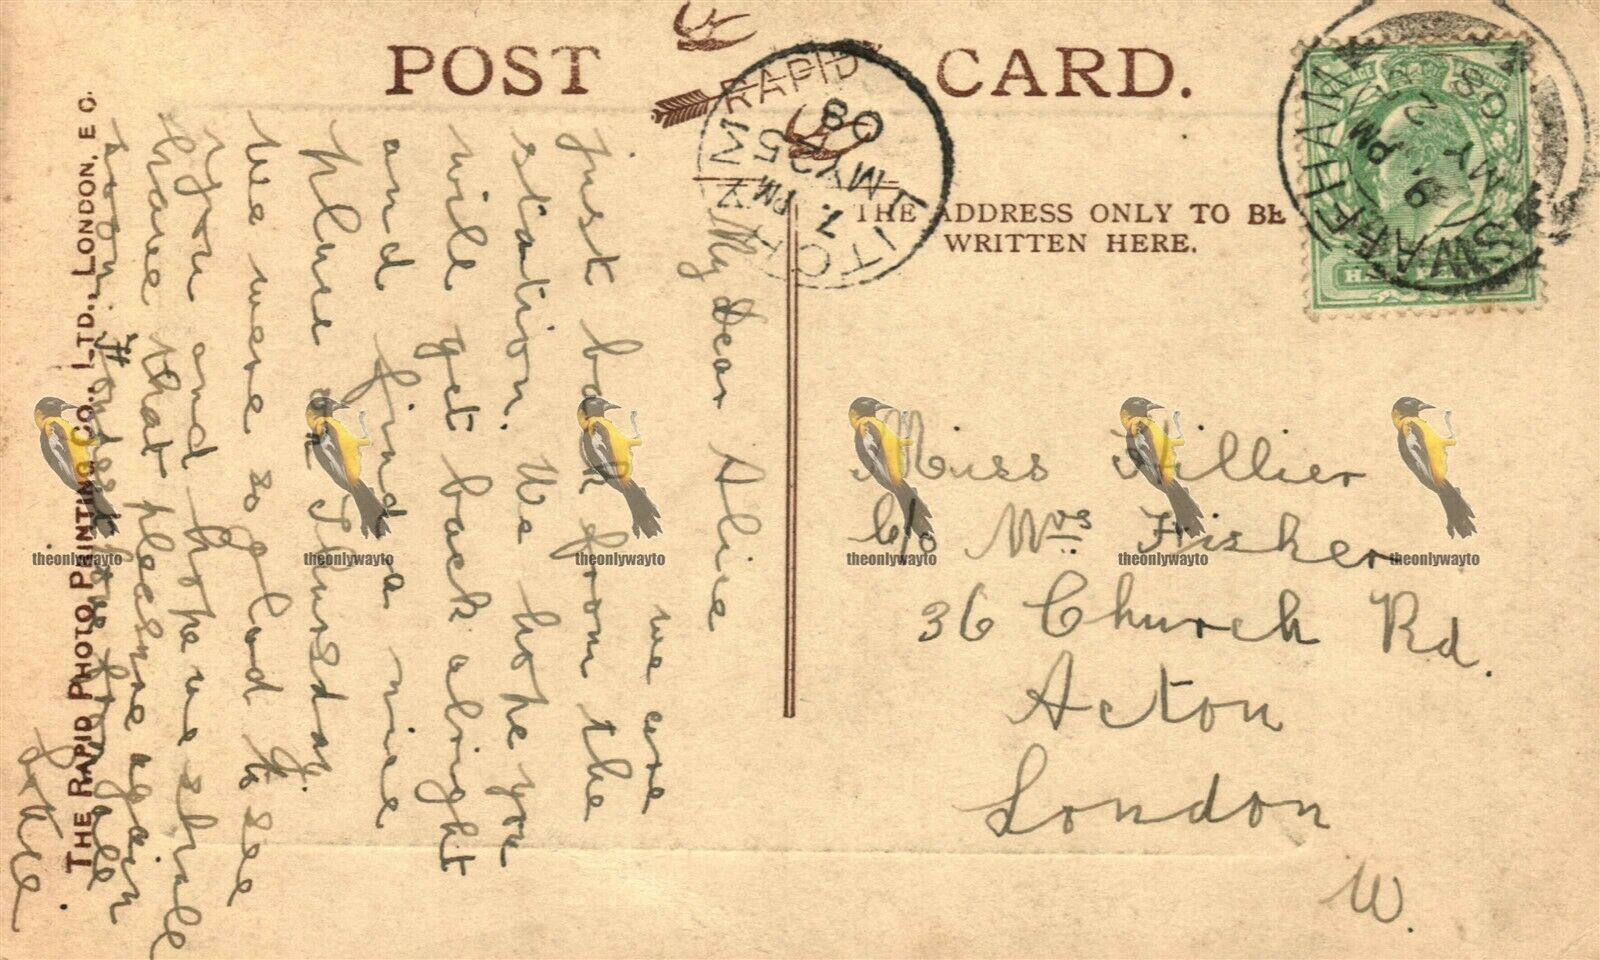 POST CARD.
RAPID
THE ADDRESS ONLY TO BE
WRITTEN HERE.
SWAFFHAM
9. PM
MY
08
LITCHAM
7. PM
MY 25
08
THE RAPID PHOTO PRINTING CO., LTD., LONDON, E C.
My Dear Aline
we are
just back from the
station. We hope you
will get back alright
and find a nice
place on Thursday.
We were so glad to see
you and hope we shall
have that pleasure again
soon. Fondest love from all
Miss Hillier
c/o Mrs Fisher
36 Church Rd.
Acton
London
W.
theonlywayto
theonlywayto
theonlywayto
theonlywayto
theonlywayto
theonlywayto